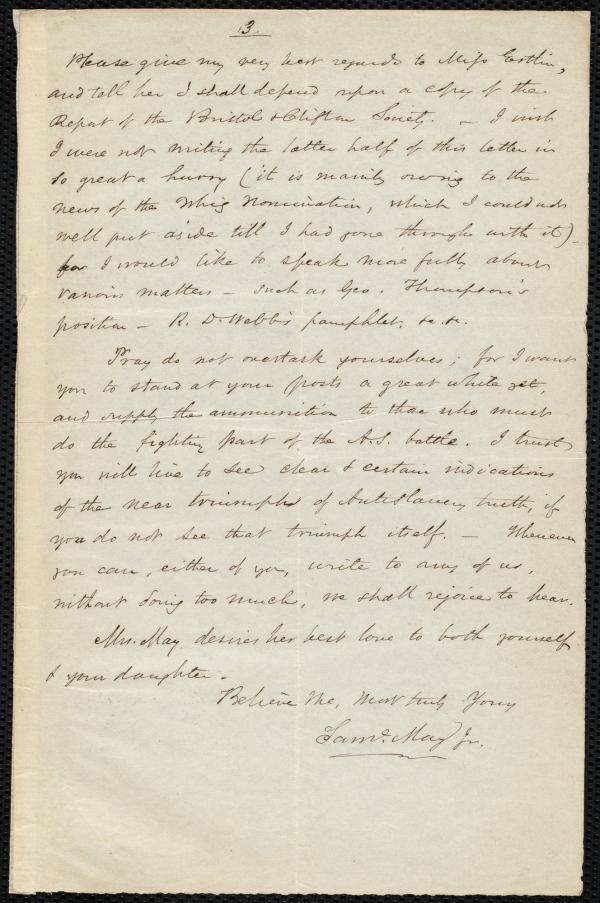 3.
Please give my very best regards to Miss Estlin,
and tell her I shall depend upon a copy of the
Report of the Bristol & Clifton Society. - I wish
I were not writing the latter half of this letter in
so great a hurry (it is mainly owing to the
news of the Whig Nomination, which I could not
well put aside till I had gone through with it) -
for I would like to speak more fully about
various matters - such as Geo. Thompson's
position - R. D. Webb's pamphlet, &c. &c.
Pray do not overtask yourselves; for I want
you to stand at your posts a great while yet,
and supply the ammunition to those who must
do the fighting part of the A.S. battle. I trust
you will live to see clear & certain indications
of the near triumph of Antislavery truth, if
you do not see that triumph itself. - Whenever
you can, either of you, write to any of us,
without doing too much, we shall rejoice to hear.
Mrs. May desires her best love to both yourself
& your daughter.
Believe me, Most truly Yours
Saml. May Jr.